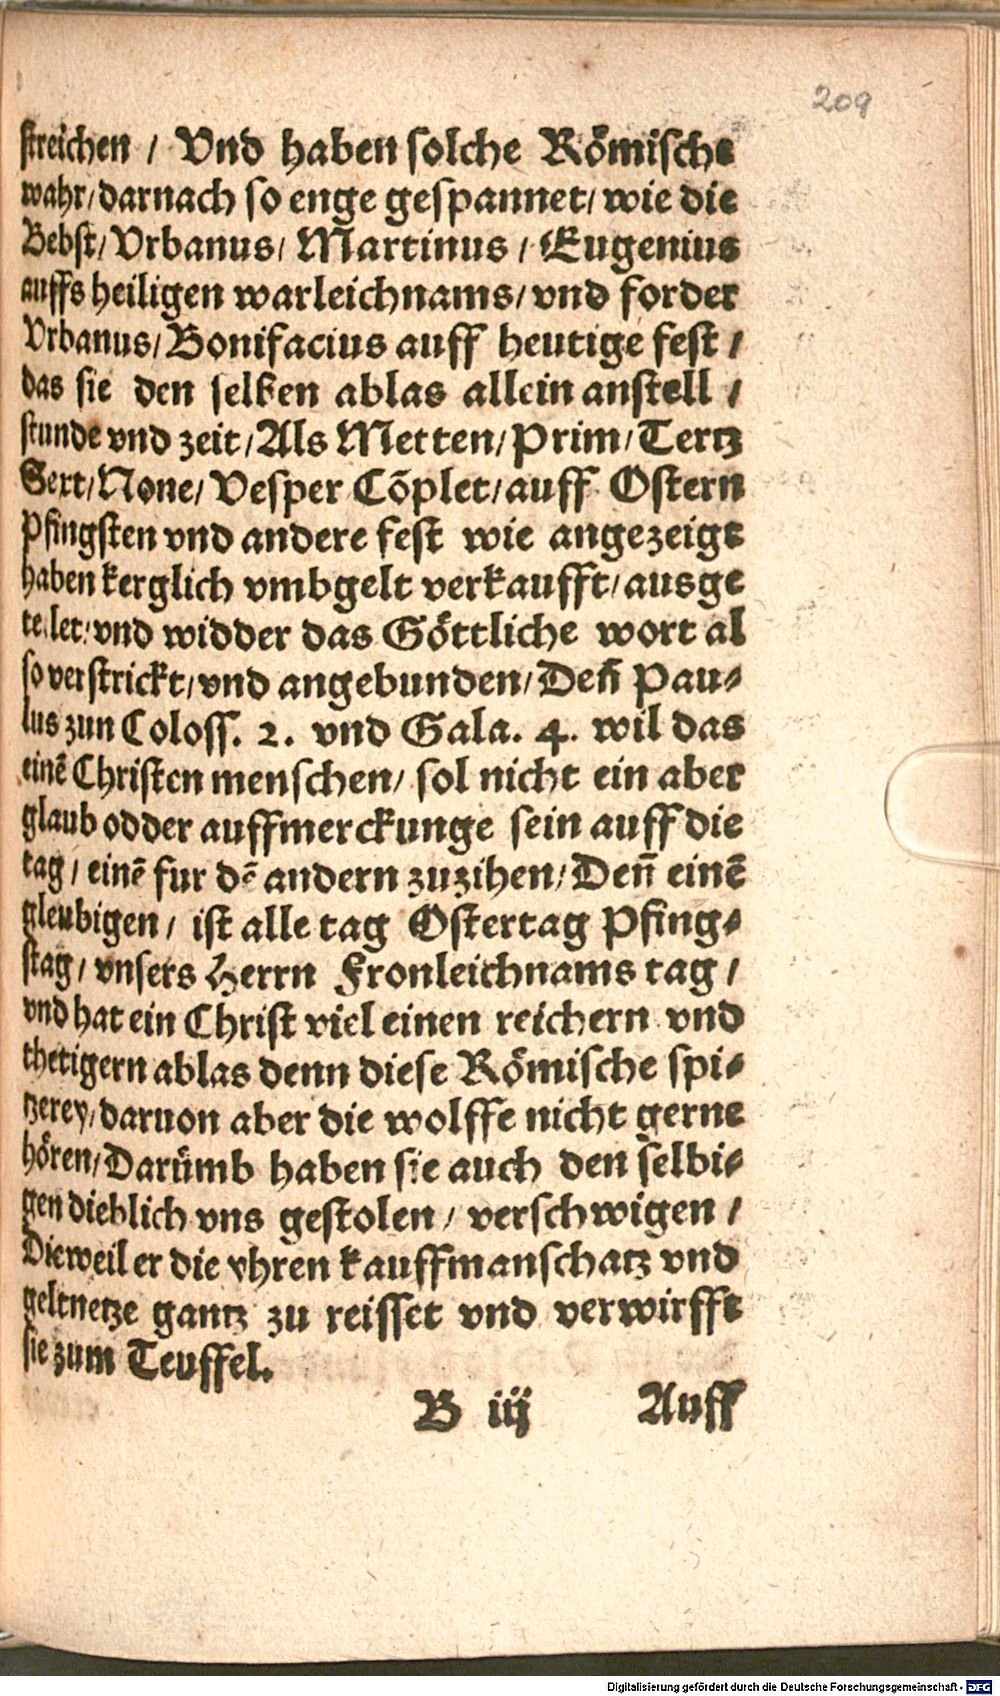 209
streichen / Vnd haben solche Römische
wahr / darnach so enge gespannet / wie die
Bebst / Vrbanus / Martinus / Eugenius
auffs heiligen warleichnams / vnd forder
Vrbanus / Bonifacius auff heutige fest /
das sie den selben ablas allein anstell /
stunde vnd zeit / Als Metten / Prim / Tertz
Sext / None / Vesper Cõplet / auff Ostern
Pfingsten vnd andere fest wie angezeigt
haben kerglich vmbgelt verkaufft / ausge
teilet / vnd widder das Göttliche wort al
so verstrickt / vnd angebunden / Deñ Pau-
lus zun Coloss. 2. vnd Gala. 4. wil das
einē Christen menschen / sol nicht ein aber
glaub odder auffmerckunge sein auff die
tag / einē fur dē andern zuzihen / Deñ einē
gleubigen / ist alle tag Ostertag Pfing-
stag / vnsers Herrn Fronleichnams tag /
vnd hat ein Christ viel einen reichern vnd
thetigern ablas denn diese Römische spi-
tzerey / daruon aber die wolffe nicht gerne
hören / Darümb haben sie auch den selbi-
gen dieblich vns gestolen / verschwigen /
Dieweil er die yhren kauffmanschatz vnd
geltnetze gantz zu reisset vnd verwirfft
sie zum Teuffel.
B iij Auff
Digitalisierung gefördert durch die Deutsche Forschungsgemeinschaft - DFG